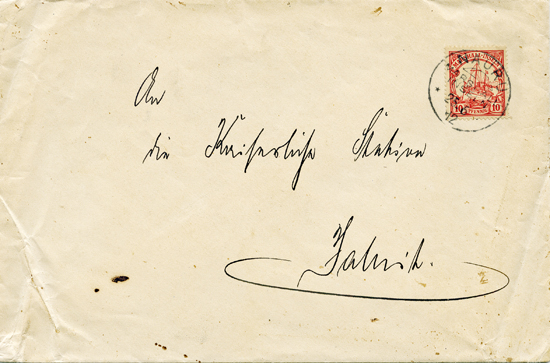 An
die Kaiserliche Station
Jaluit.
NAURU
MARSHALL-INSELN
10 PFENNIG 10